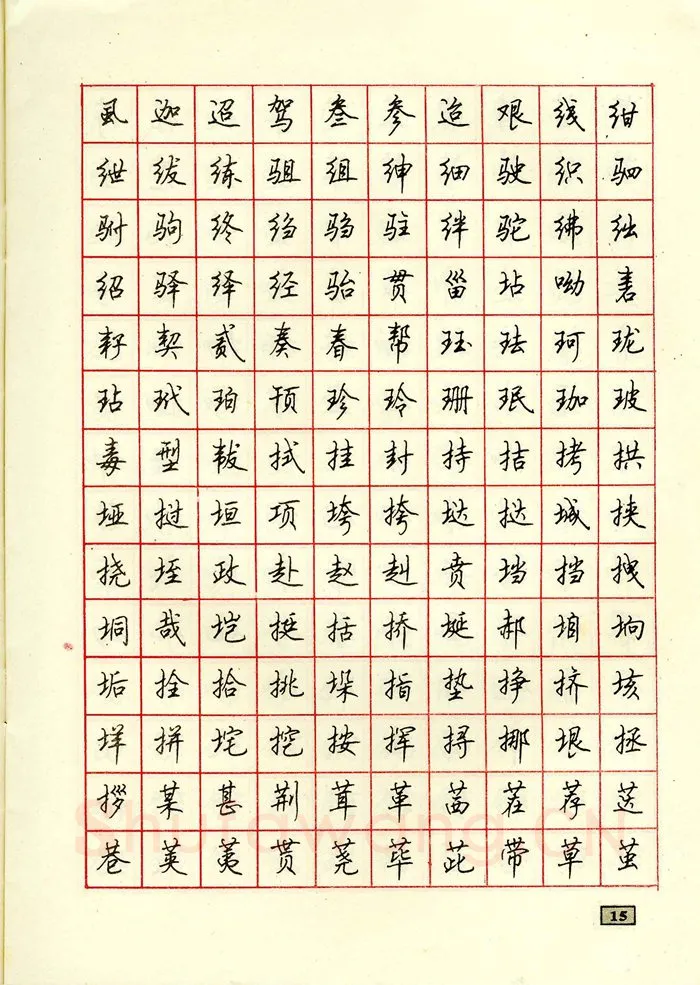 虱迦迢驾叁参迨艰线绀
绁绂练驵组绅细驶织驷
驸驹终绉驺驻绊驼绋绌
绍驿绎经骀贯甾坫呦砉
耔契贰奏春帮珏珐珂珑
玷玳珀顸珍玲珊珉珈玻
毒型韨拭挂封持拮拷拱
垭挝垣项垮挎垯挞城挟
挠垤政赴赵赳贲垱挡拽
垌哉垲挺括挢埏郝垍垧
垢拴拾挑垛指垫挣挤垓
垟拼垞挖按挥挦挪垠拯
拶某甚荆茸革茜茬荐荙
Shufawang.CN
巷荚荑贳荛荜茈带草茧
15